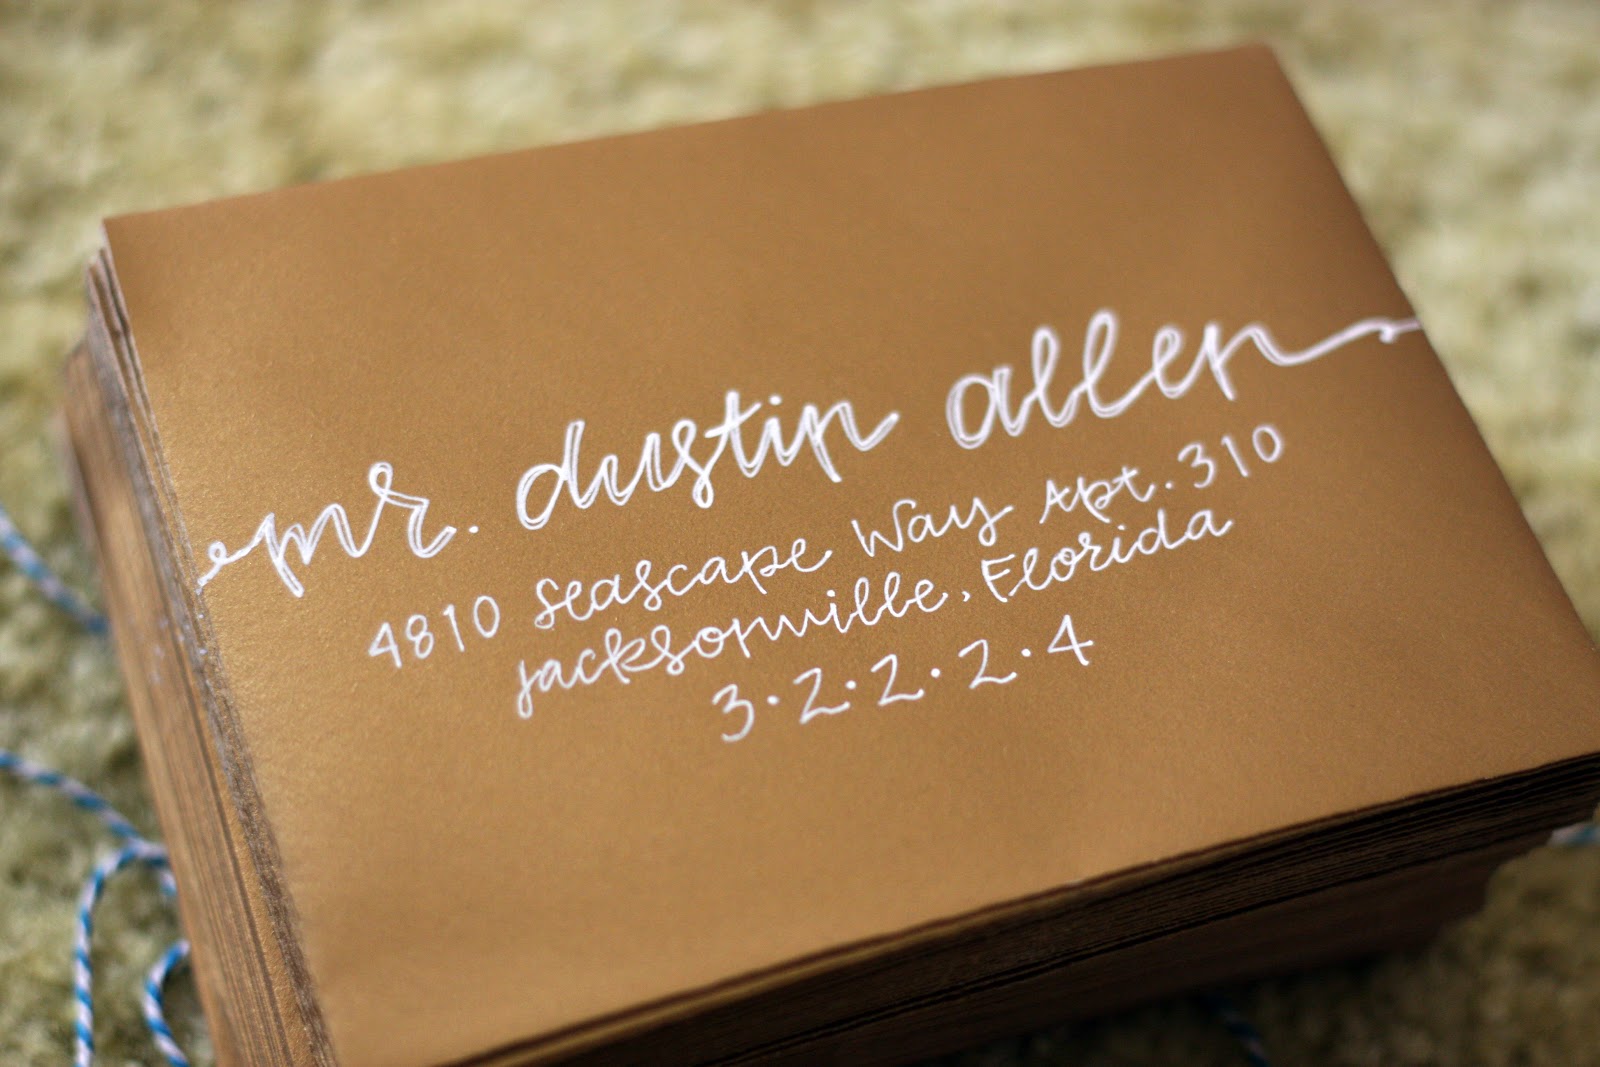 mr. dustin allen
4810 Seascape Way Apt. 310
Jacksonville, Florida
3·2·2·2·4